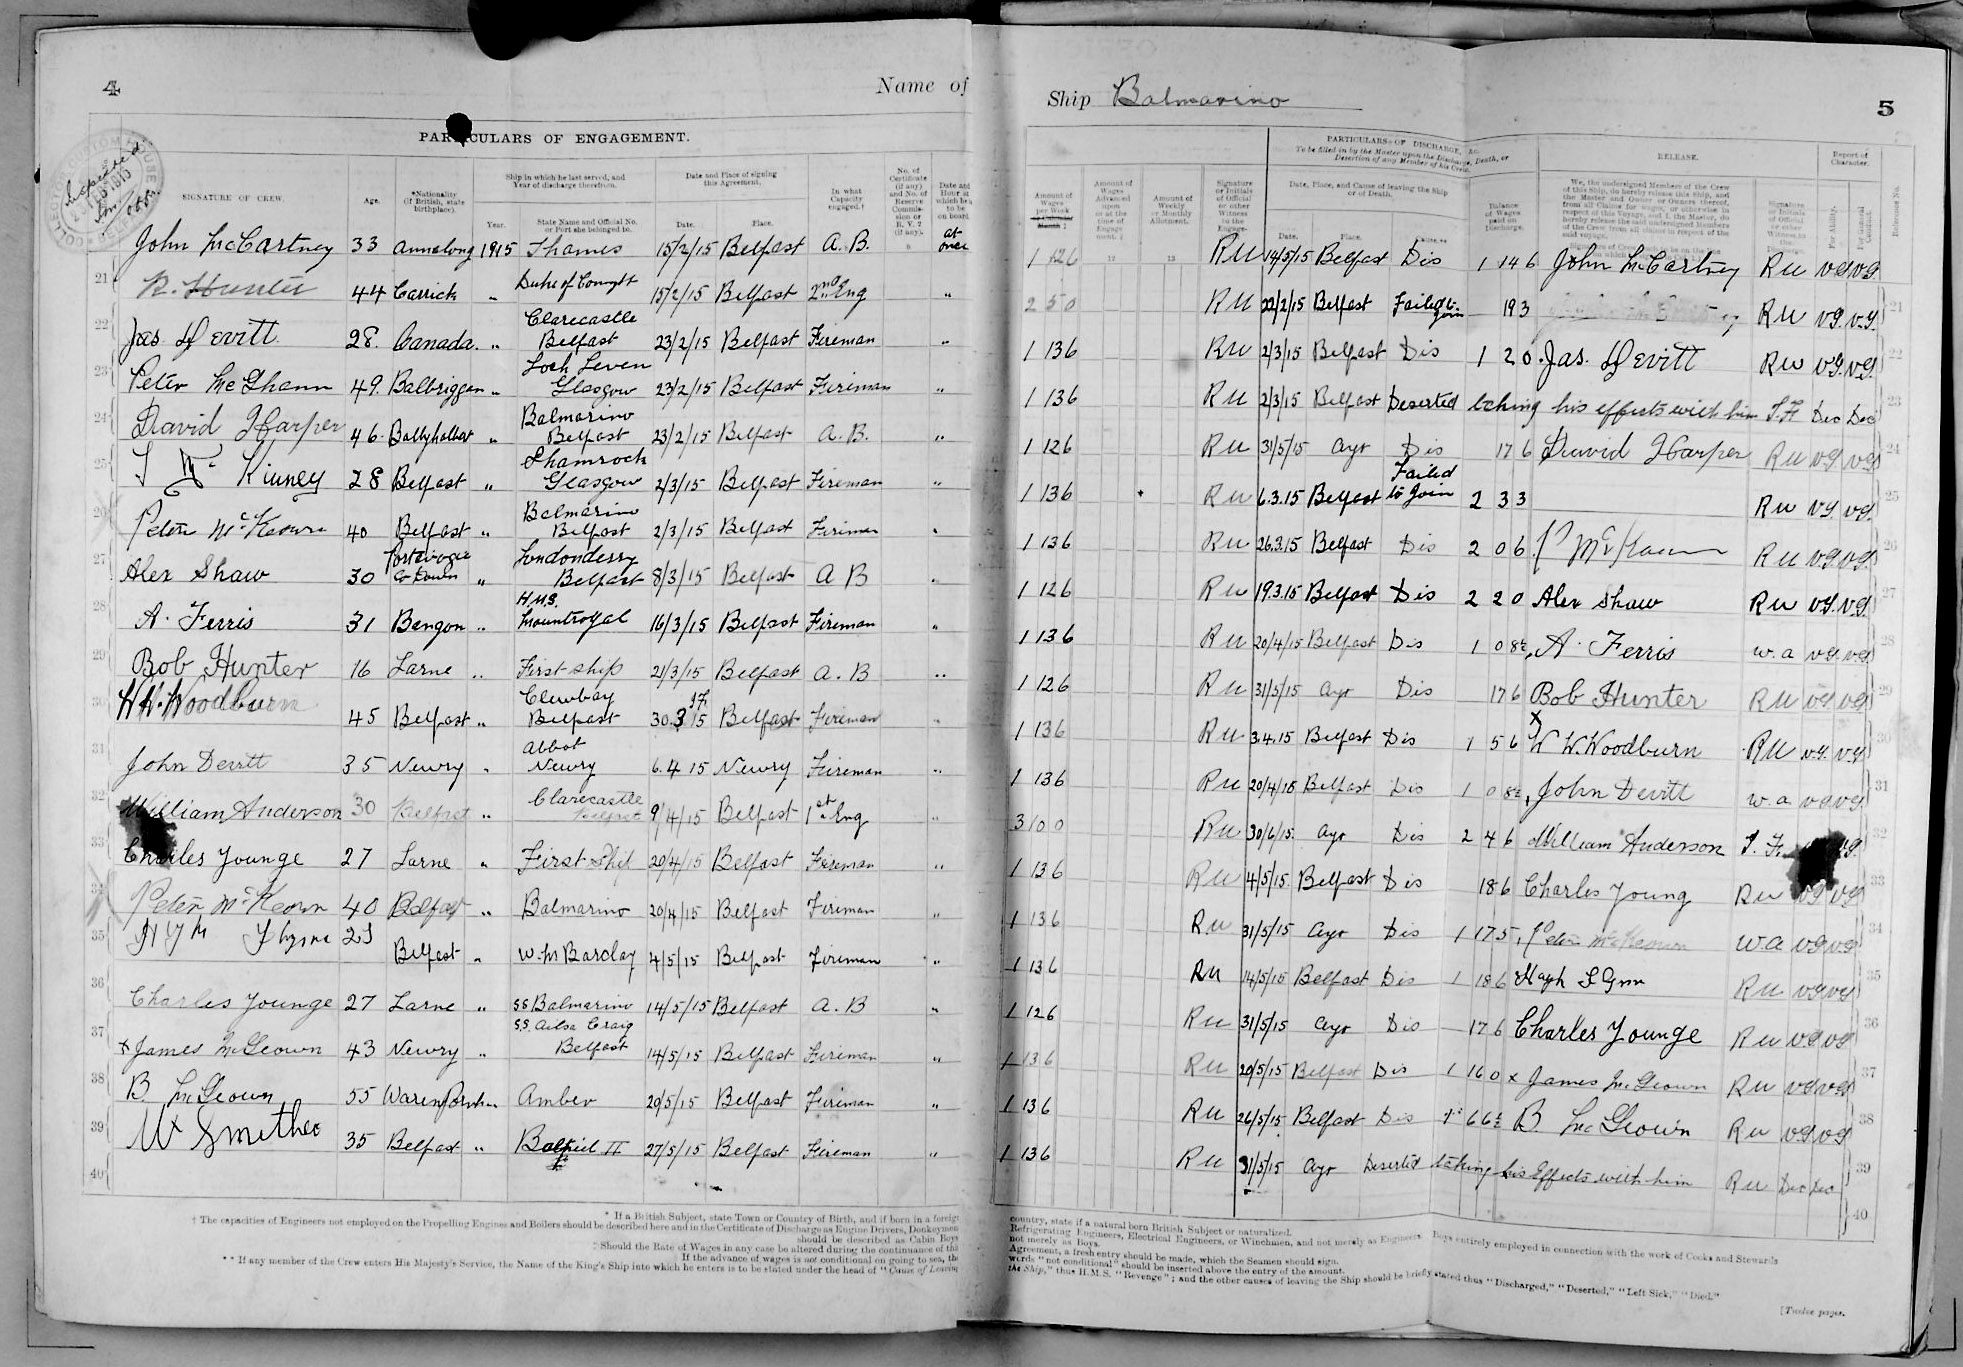 4
Name of
Ship Balmarino
5
PARTICULARS OF ENGAGEMENT.
SIGNATURE OF CREW.
Age.
*Nationality (if British, state birthplace).
Ship in which he last served, and Year of discharge therefrom.
Year.
State Name and Official No. or Port she belonged to.
Date and Place of signing this Agreement.
Date.
Place.
In what Capacity engaged.†
PARTICULARS OF DISCHARGE, &c.
To be filled in by the Master upon the Discharge, Death, or Desertion of any Member of his Crew.
Date, Place, and Cause of leaving the Ship or of Death.
Date.
Place.
Balance of Wages paid on Discharge.
RELEASE.
Report of Character.
John McCartney 33 Annalong 1915 Thames 15/2/15 Belfast A.B. at once 1 12 6 RM 14/5/15 Belfast Dis 1 14 6 John McCartney RM VG VG
21 R. Hunter 44 Carrick " 15/2/15 Belfast 2nd Eng " 2 5 0 RM 22/2/15 Belfast Failed to join 19 3 RM VG VG 21
22 Jas Devitt 28 Canada " Clarecastle Belfast 23/2/15 Belfast Fireman " 1 13 6 RM 2/3/15 Belfast Dis 1 2 0 Jas. Devitt RM VG VG 22
23 Peter McGhann 49 Balbriggan " Loch Leven Glasgow 23/2/15 Belfast Fireman " 1 13 6 RM 2/3/15 Belfast Deserted taking his effects with him Dec Dec 23
24 David Harper 46 Ballyhalbert " Balmarino Belfast 23/2/15 Belfast A.B. " 1 12 6 RM 31/5/15 Ayr Dis 17 6 David Harper RM VG VG 24
25 Kinney 28 Belfast " Shamrock Glasgow 2/3/15 Belfast Fireman " 1 13 6 RM 6.3.15 Belfast Failed to Join 2 3 3 RM VG VG 25
26 Peter McKeown 40 Belfast " Balmarino Belfast 2/3/15 Belfast Fireman " 1 13 6 RM 26.3.15 Belfast Dis 2 0 6 P McKeown RM VG VG 26
27 Alex Shaw 30 Portavogie Co Down " Londonderry Belfast 8/3/15 Belfast A B " 1 12 6 RM 19.3.15 Belfast Dis 2 2 0 Alex Shaw RM VG VG 27
28 A. Ferris 31 Bangor " H.M.S. Mountroyal 16/3/15 Belfast Fireman " 1 13 6 RM 20/4/15 Belfast Dis 1 0 8½ A. Ferris W.A VG VG 28
29 Bob Hunter 16 Larne " First ship 21/3/15 Belfast A.B " 1 12 6 RM 31/5/15 Ayr Dis 17 6 Bob Hunter RM VG VG 29
30 W.W. Woodburn 45 Belfast " Clewbay Belfast 30.3.15 Belfast Fireman " 1 13 6 RM 3.4.15 Belfast Dis 1 5 6 W W. Woodburn RM VG VG 30
31 John Devitt 35 Newry " Abbot Newry 6.4 15 Newry Fireman " 1 13 6 RM 20/4/15 Belfast Dis 1 0 8½ John Devitt W.A VG VG 31
32 William Anderson 30 Belfast " Clarecastle Belfast 9/4/15 Belfast 1st Eng " 3 10 0 RM 30/6/15 Ayr Dis 2 4 6 William Anderson VG 32
33 Charles Younge 27 Larne " First Ship 20/4/15 Belfast Fireman " 1 13 6 RM 4/5/15 Belfast Dis 18 6 Charles Young RM VG VG 33
34 Peter McKeown 40 Belfast " Balmarino 20/4/15 Belfast Fireman " 1 13 6 RM 31/5/15 Ayr Dis 1 17 5 Peter McKeown W.A VG VG 34
35 Belfast " W.M Barclay 4/5/15 Belfast Fireman " 1 13 6 RM 14/5/15 Belfast Dis 1 18 6 RM VG VG 35
36 Charles Younge 27 Larne " SS Balmarino 14/5/15 Belfast A.B " 1 12 6 RM 31/5/15 Ayr Dis 17 6 Charles Younge RM VG VG 36
37 x James McGeown 43 Newry " S.S. Ailsa Craig Belfast 14/5/15 Belfast Fireman " 1 13 6 RM 20/5/15 Belfast Dis 1 16 0 x James McGeown RM VG VG 37
38 B McGeown 55 " Amber 20/5/15 Belfast Fireman " 1 13 6 RM 26/5/15 Belfast Dis 1 6 6½ B. McGeown RM VG VG 38
39 35 Belfast " 27/5/15 Belfast Fireman " 1 13 6 RM 31/5/15 Ayr Deserted taking his Effects with him RM Dec Dec 39
40 40
* If a British Subject, state Town or Country of Birth, and if born in a foreign country, state if a natural born British Subject or naturalized.
† The capacities of Engineers not employed on the Propelling Engines and Boilers should be described here and in the Certificate of Discharge as Engine Drivers, Donkeymen Refrigerating Engineers, Electrical Engineers, or Winchmen, and not merely as Engineers. Boys entirely employed in connection with the work of Cooks and Stewards
should be described as Cabin Boys not merely as Boys.
‡ Should the Rate of Wages in any case be altered during the continuance of the Agreement, a fresh entry should be made, which the Seamen should sign.
If the advance of wages is not conditional on going to sea, the words "not conditional" should be inserted above the entry of the amount.
** If any member of the Crew enters His Majesty's Service, the Name of the King's Ship into which he enters is to be stated under the head of "Cause of Leaving the Ship," thus H.M.S. "Revenge"; and the other causes of leaving the Ship should be briefly stated thus "Discharged," "Deserted," "Left Sick," "Died."
[Twelve pages.